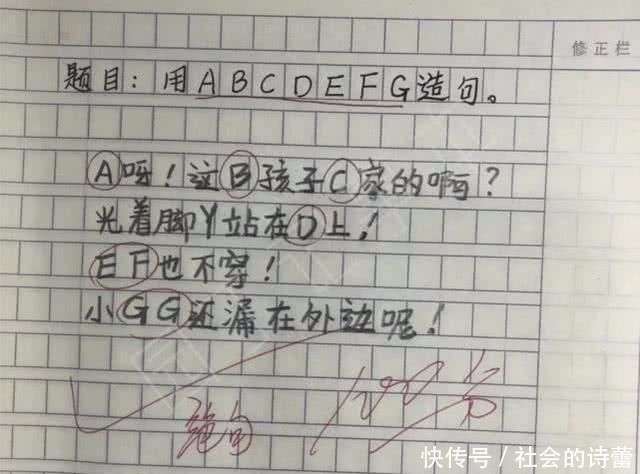 修正栏
题目：用ABCDEFG造句。
A呀！这B孩子C家的啊？
光着脚丫站在D上！
EF也不穿！
小GG还漏在外边呢！
绝句
100分
快传号／社会的诗蕾